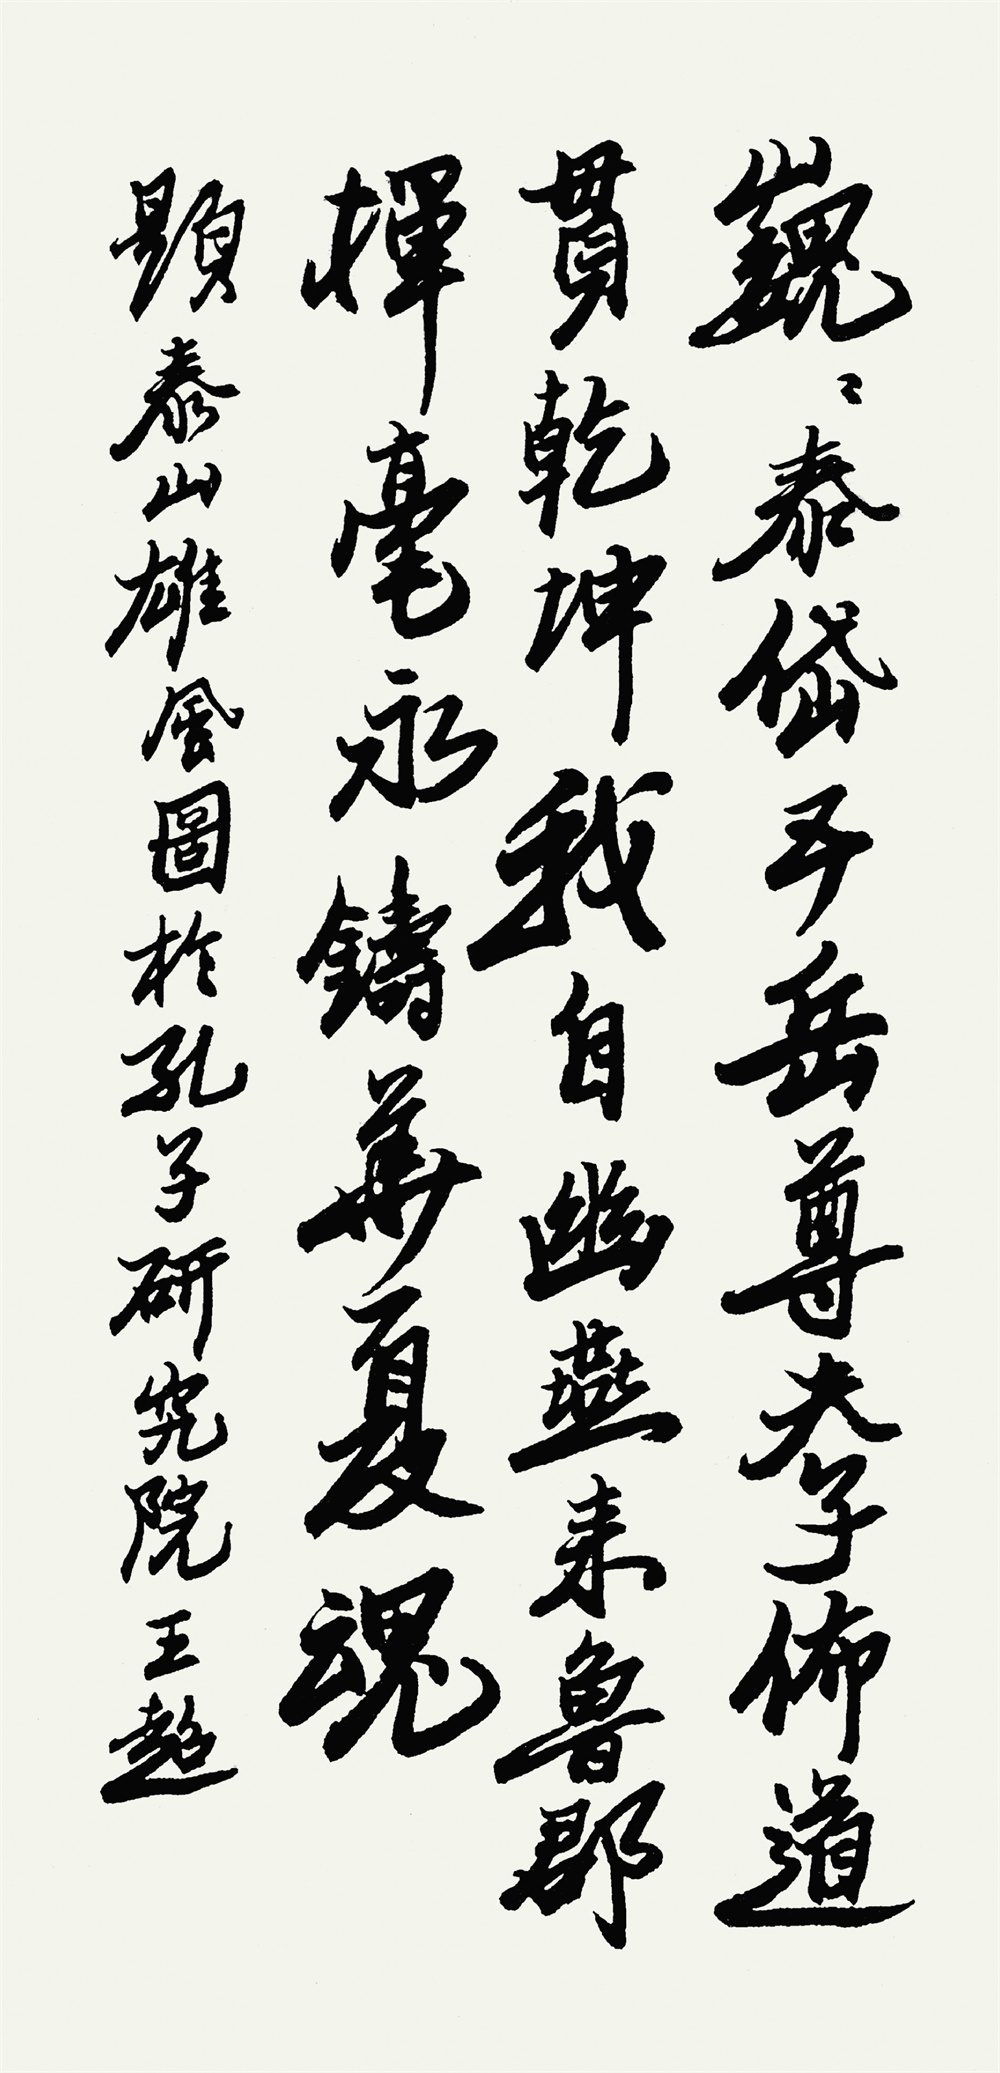 巍〻泰岱五岳尊夫子佈道
貫乾坤我自幽燕来魯郡
揮毫永鑄華夏魂
題泰山雄風圖於孔子研究院王超